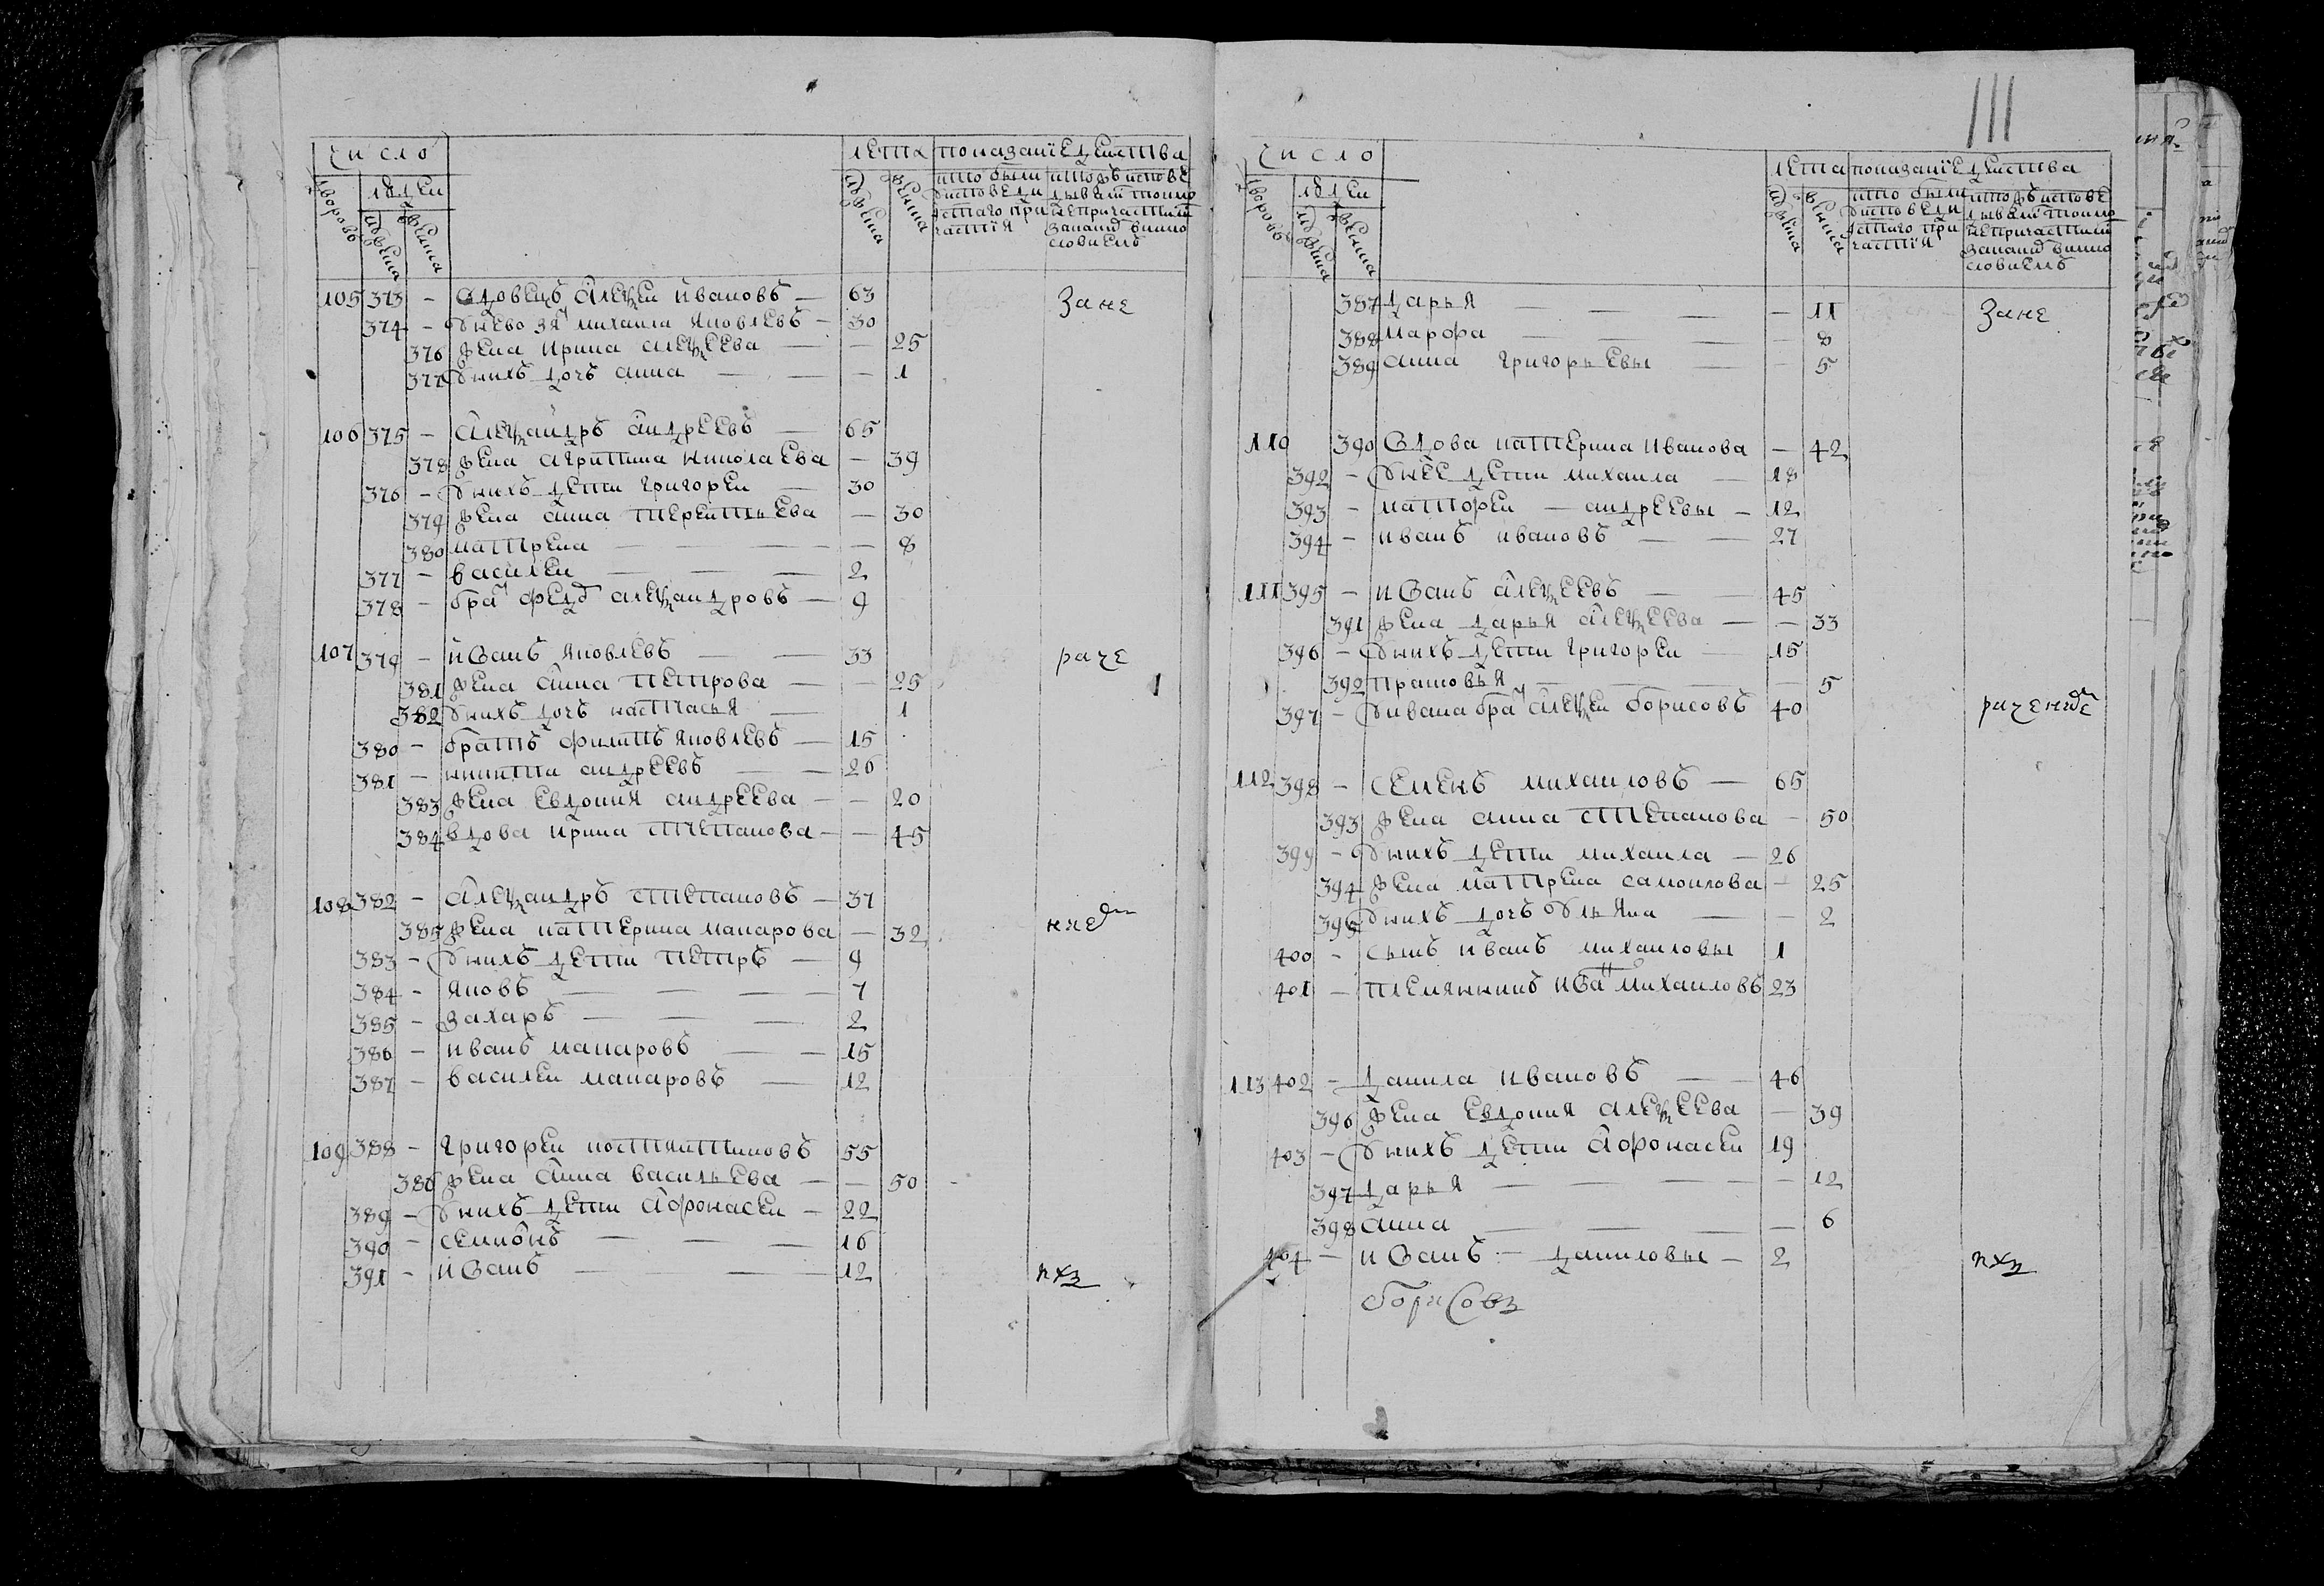 число
лета показание действа
людей
дворовъ
мужеска
женска
мужеска
женска
кто были у исповеди и святаго причастия
кто же исповедывались токмо не причастился
105 373 - вдовецъ Алеѯеи Ивановъ - 63 Зане
374 - у нево зя михаила яковлевъ - 30
376 жена ирина алеѯеева - 25
377 у нихъ дочь анна - 1
106 375 - Алеѯандръ андреевъ - 65
378 жена агрипина николаева - 39
376 - у нихъ дети григореи - 30
379 жена анна терентьева - 30
380 матрена - 8
377 - василеи - 2
378 - бра федо алеѯандровъ - 9
107 379 - иванъ яковлевъ - 33 раче
381 жена анна петрова - 25
382 у нихъ дочь настасья - 1
380 - братъ филипъ яковлевъ - 15
381 - никита андреевъ - 26
383 жена евдокия андреева - 20
384 вдова ирина степанова - 45
108 382 - Алеѯандръ степановъ - 37
385 жена катерина макарова - 32
383 - у нихъ дети петръ - 9
384 - яковъ - 7
385 - захаръ - 2
386 - иванъ макаровъ - 15
387 - василеи макаровъ - 12
109 388 - григореи костянтиновъ 55
386 жена анна васильева - 50
389 - у нихъ дети афонасеи - 22
390 - семионъ - 16
391 - иванъ - 12
число
лета показание действа
людей
дворовъ
мужеска
женска
мужеска
женска
кто были у исповеди и святаго причастия
кто же исповедывались токмо не причастился
111
387 дарья - 11 Зане
388 марфа - 8
389 анна григорьевы - 5
110 390 вдова катерина иванова - 42
392 - у нее дети михаила - 18
393 - матфеи - андреевы - 12
394 - иванъ ивановъ - 27
111 395 - иванъ алеѯеевъ - 45
391 жена дарья алеѯеева - 33
396 - у нихъ дети григореи - 15
392 прасковья - 5
397 - у ивана бра алеѯеи борисовъ 40
112 398 - семенъ михаиловъ - 65
393 жена анна степанова - 50
399 - у нихъ дети михаила - 26
394 жена матрена самоилова - 25
395 у нихъ дочь ульяна - 2
400 - сынъ иванъ михаиловы 1
401 - племянникъ ива михаиловъ 23
113 402 - данила ивановъ - 46
396 жена евдокия алеѯеева - 39
403 - у нихъ дети афонасеи 19
397 дарья - 12
398 анна - 6
404 - иванъ - даниловы - 2
Борисовъ